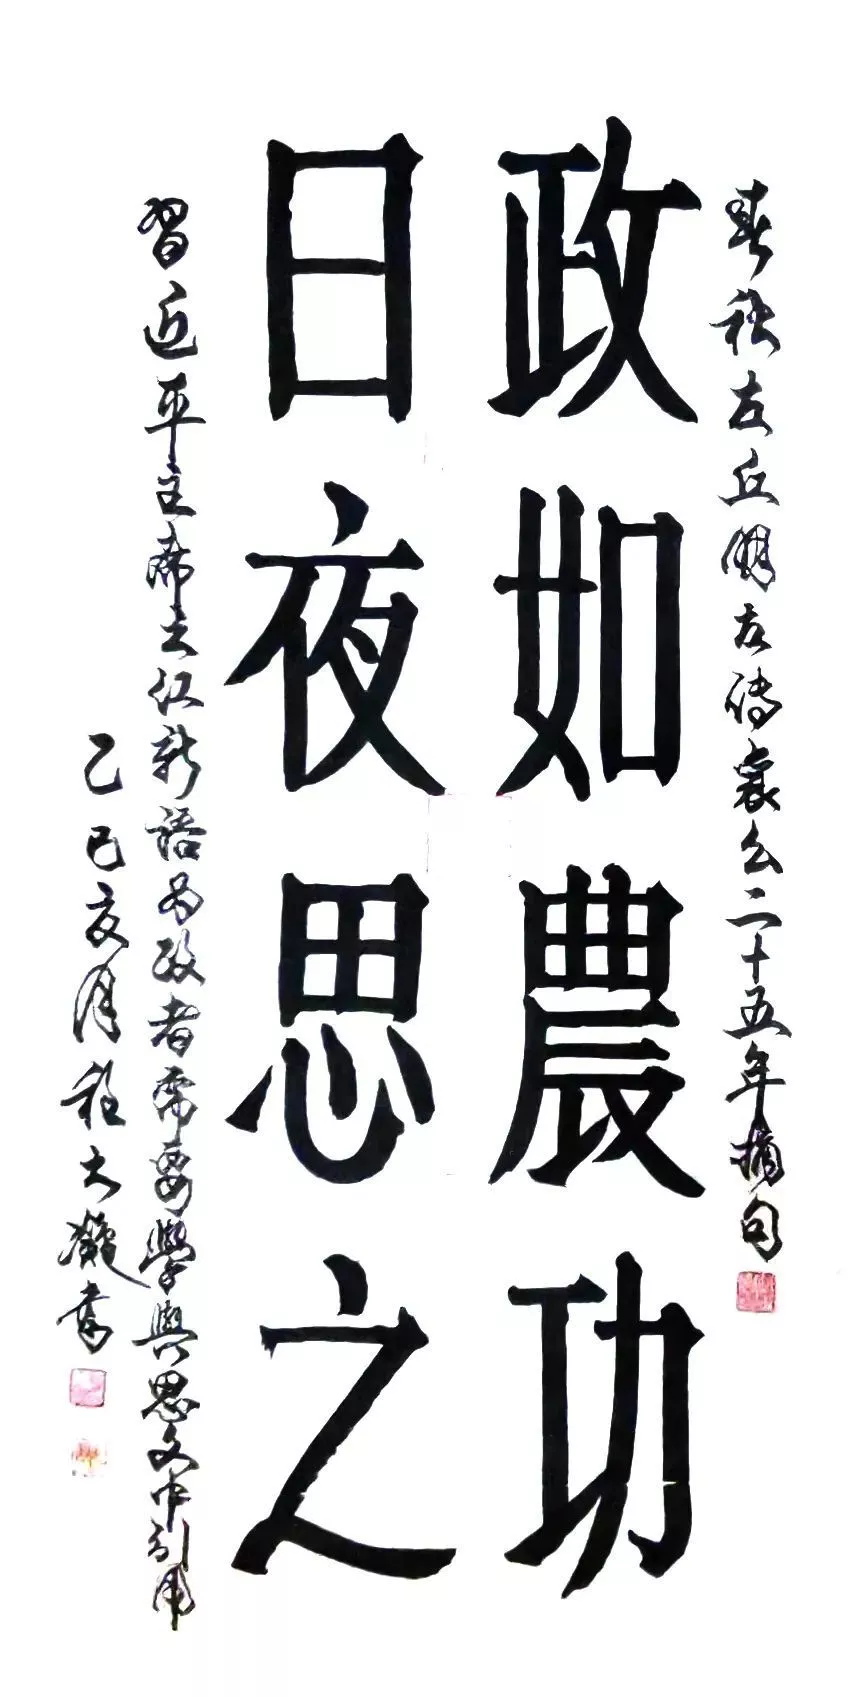 春秋左丘明左传襄公二十五年摘句
政如農功
日夜思之
習近平主席之江新語为政者需要學與思文中引用
乙巳亥月程大巍書